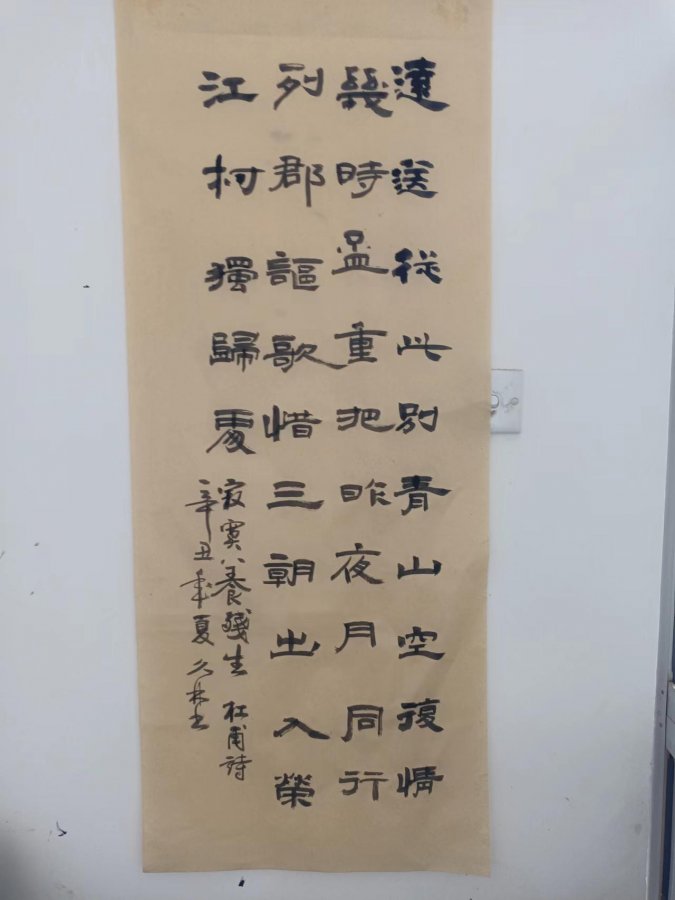 遠送從此別青山空復情
幾時盃重把昨夜月同行
列郡謳歌惜三朝出入榮
江村獨歸處
寂寞養殘生 杜甫詩
辛丑年夏